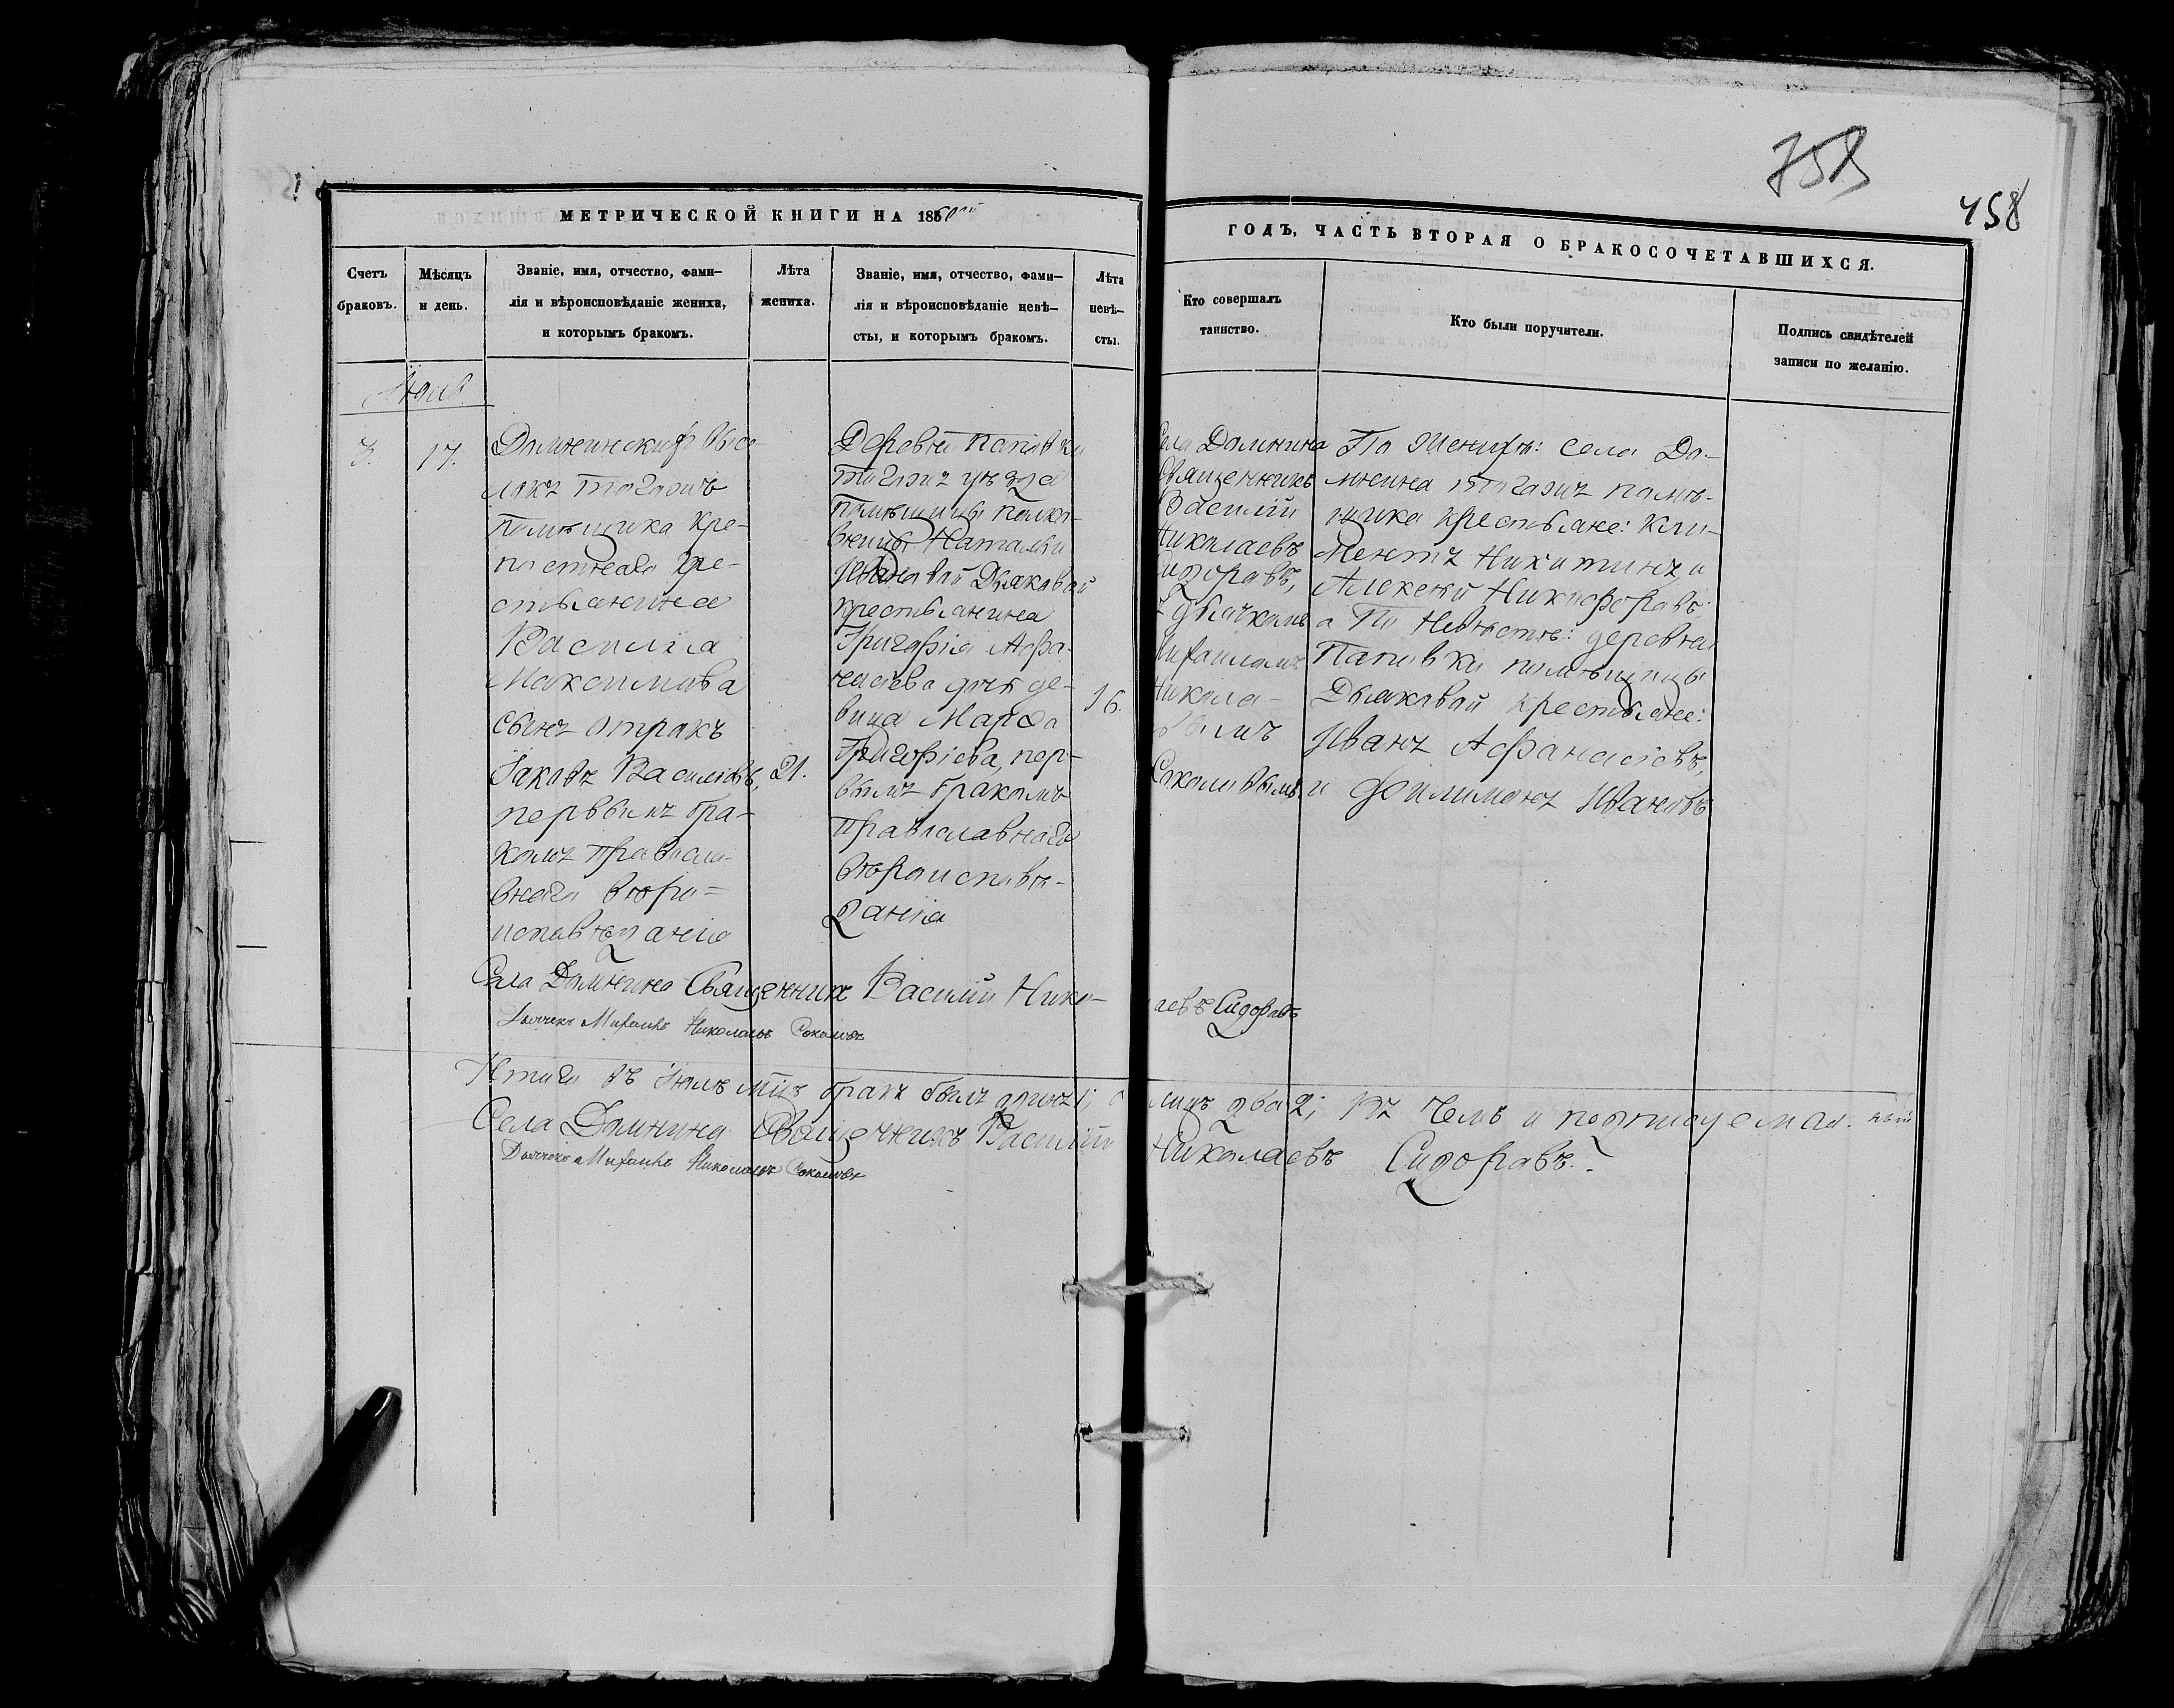 758
458
МЕТРИЧЕСКОЙ КНИГИ НА 1860й
ГОДЪ, ЧАСТЬ ВТОРАЯ О БРАКОСОЧЕТАВШИХСЯ.
Счетъ
браковъ.
Мѣсяцъ
и день.
Званіе, имя, отчество, фами-
лія и вѣроисповѣданіе жениха,
и которымъ бракомъ.
Лѣта
жениха.
Званіе, имя, отчество, фами-
лія и вѣроисповѣданіе невѣ-
сты, и которымъ бракомъ.
Лѣта
невѣ-
сты.
Кто совершалъ
таинство.
Кто были поручители.
Подпись свидѣтелей
записи по желанію.
3.
17.
Домнинскихъ Высе-
локъ тогожъ
помѣщика кре-
постнаго кре-
стьянина
Василія
Максимова
сынъ отрокъ
Іаковъ Василіевъ,
первымъ бра-
комъ православ-
внаго вѣро-
исповѣданія
21.
Деревни Поповки
тогожъ уѣзда
помѣщицы полко-
вницы Натальи
Ивановой Дьяковой
крестьянина
Григорія Афа-
насіева дочь де-
вица Марѳа
Григоріева, пер-
вымъ бракомъ
православнаго
вѣроисповѣ-
данія
16.
Села Домнина
Священникъ
Василій
Николаевъ
Сидоровъ,
съ дьячкомъ
Михаиломъ
Никола-
евымъ
Соколовымъ
По женихѣ: села До-
мнина тогожъ помѣ-
щика крестьяне: Кли-
ментъ Никитинъ, и
Алексѣй Никифоровъ;
а По Невѣстѣ: деревни
Поповки помѣщицы
Дьяковой крестьяне:
Иванъ Афанасіевъ,
и Филимонъ Ивановъ
Села Домнина Священникъ Василій Николаевъ Сидоровъ
Дьячекъ Михаилъ Николаевъ Соколовъ
Итого въ мцѣ бракъ былъ одинъ 1; а лицъ два 2; Въ чемъ и подписуемся.
Села Домнина Священникъ Василій Николаевъ Сидоровъ.
Дьячекъ Михаилъ Николаевъ Соколовъ